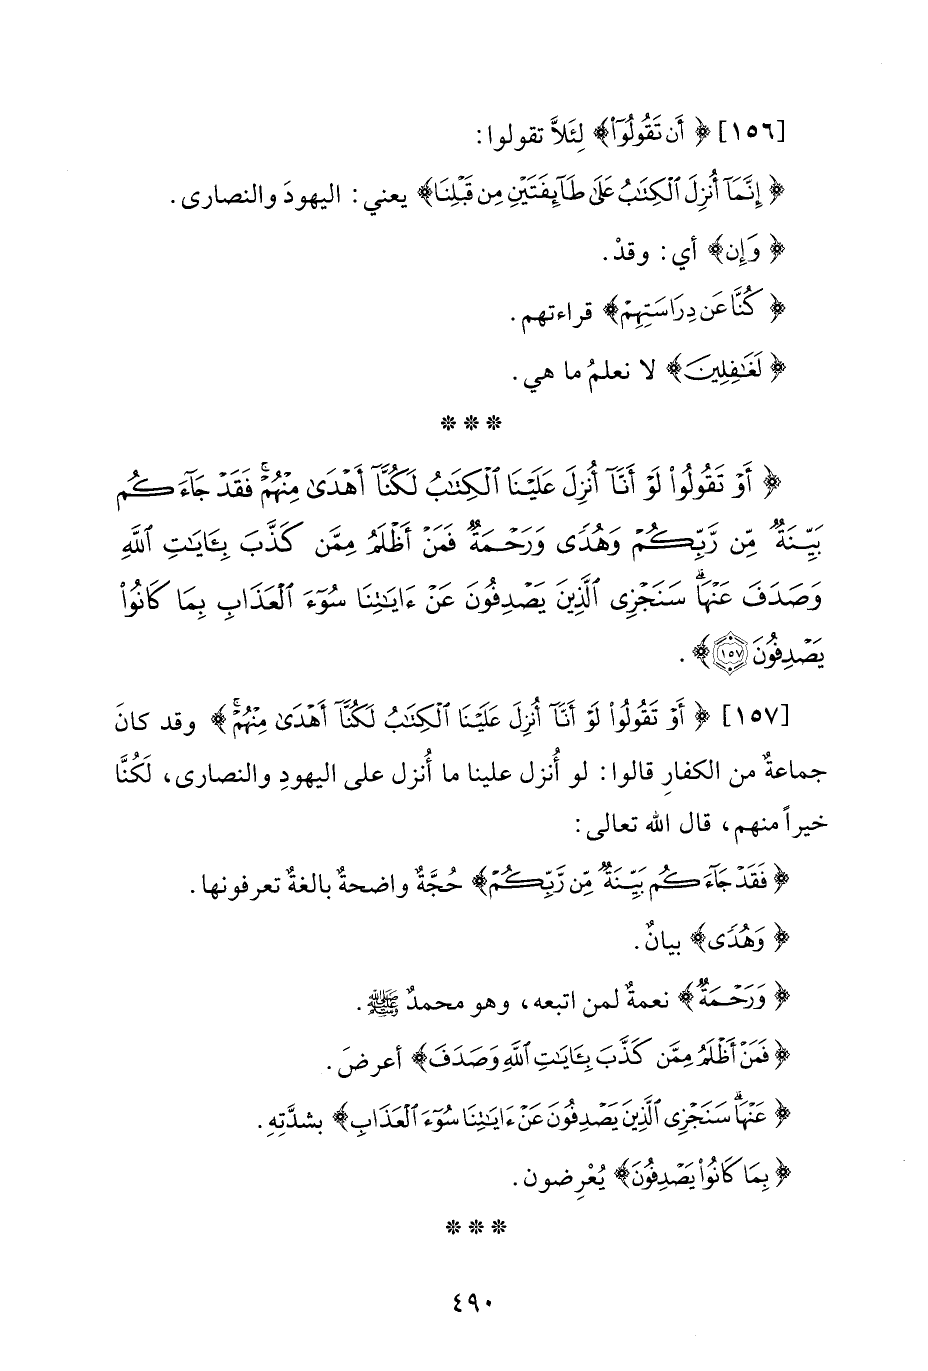 [١٥٦] ﴿ أَن تَقُولُوٓاْ﴾ لِئَلاَّ تقولوا:
﴿ إِنَّمَآ أُنزِلَ ٱلْكِتَٰبُ عَلَىٰ طَآئِفَتَيْنِ مِن قَبْلِنَا﴾ يعني: اليهودَ والنصارى.
﴿ وَإِن﴾ أي: وقدْ.
﴿ كُنَّا عَن دِرَاسَتِهِمْ﴾ قراءتهم.
﴿ لَغَٰفِلِينَ﴾ لا نعلمُ ما هي.
* * *
﴿ أَوْ تَقُولُواْ لَوْ أَنَّآ أُنزِلَ عَلَيْنَا ٱلْكِتَٰبُ لَكُنَّآ أَهْدَىٰ مِنْهُمْ ۚ فَقَدْ جَآءَكُم
بَيِّنَةٌ مِّن رَّبِّكُمْ وَهُدًى وَرَحْمَةٌ ۚ فَمَنْ أَظْلَمُ مِمَّن كَذَّبَ بِـَٔايَٰتِ ٱللَّهِ
وَصَدَفَ عَنْهَا ۗ سَنَجْزِى ٱلَّذِينَ يَصْدِفُونَ عَنْ ءَايَٰتِنَا سُوٓءَ ٱلْعَذَابِ بِمَا كَانُواْ
يَصْدِفُونَ ١٥٧﴾ .
[١٥٧] ﴿ أَوْ تَقُولُواْ لَوْ أَنَّآ أُنزِلَ عَلَيْنَا ٱلْكِتَٰبُ لَكُنَّآ أَهْدَىٰ مِنْهُمْ ۚ﴾ وقد كانَ
جماعةٌ من الكفارِ قالوا: لو أُنزل علينا ما أُنزل على اليهودِ والنصارى، لَكُنَّا
خيراً منهم، قال الله تعالى:
﴿ فَقَدْ جَآءَكُم بَيِّنَةٌ مِّن رَّبِّكُمْ﴾ حُجَّةٌ واضحةٌ بالغةٌ تعرفونها.
﴿ وَهُدًى﴾ بيانٌ.
﴿ وَرَحْمَةٌ ۚ﴾ نعمةٌ لمن اتبعه، وهو محمدٌ ﷺ.
﴿ فَمَنْ أَظْلَمُ مِمَّن كَذَّبَ بِـَٔايَٰتِ ٱللَّهِ وَصَدَفَ﴾ أعرضَ.
﴿ عَنْهَا ۗ سَنَجْزِى ٱلَّذِينَ يَصْدِفُونَ عَنْ ءَايَٰتِنَا سُوٓءَ ٱلْعَذَابِ﴾ بشدَّتِهِ.
﴿ بِمَا كَانُواْ يَصْدِفُونَ﴾ يُعْرِضون.
* * *
٤٩٠